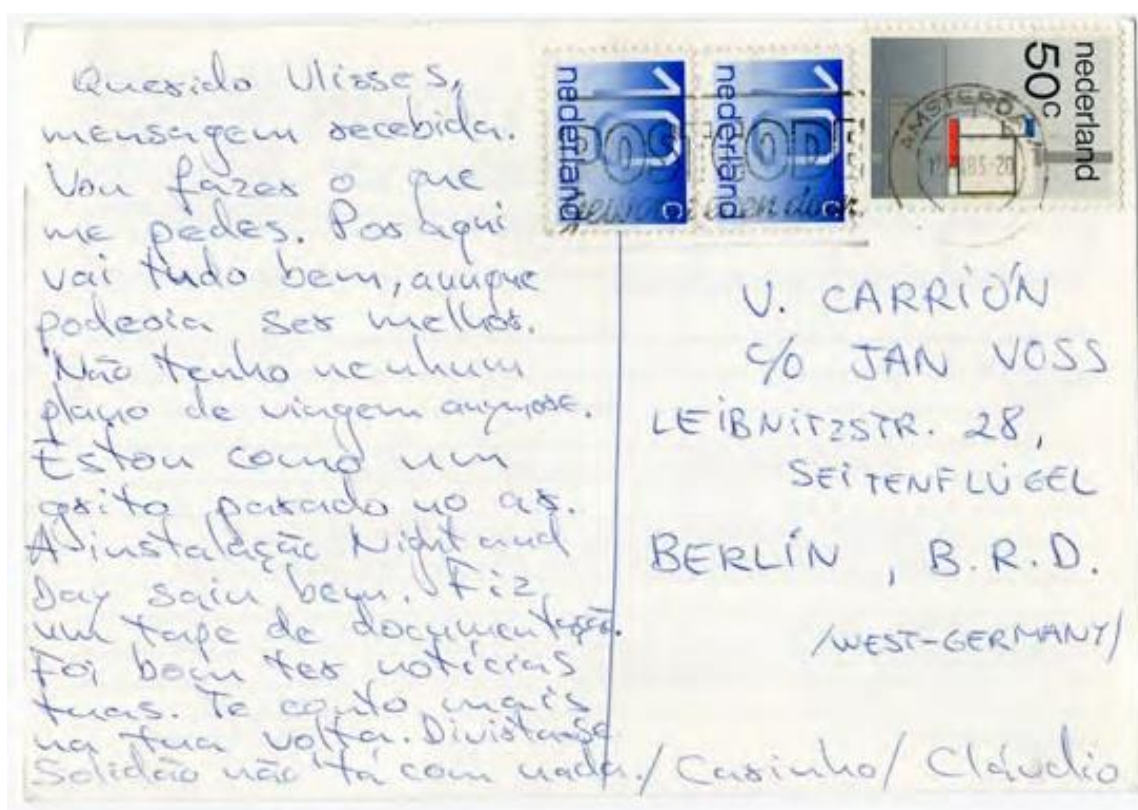 Querido Ulisses,
mensagem recebida.
Vou fazer o que
me pedes. Por aqui
vai tudo bem, aunque
poderia ser melhor.
Não tenho nenhum
plano de viagem anymore.
Estou como um
grito parado no ar.
A instalação Night and
Day saiu bem. Fiz
um tape de documentação.
Foi bom ter notícias
tuas. Te conto mais
na tua volta. Divirta-se.
Solidão não 'tá com nada. / Carinho / Cláudio
10 c
nederland
10 c
nederland
50 c
nederland
AMSTERDAM
POSTCODE
V. CARRIÓN
c/o JAN VOSS
LEIBNITZSTR. 28,
SEITENFLÜGEL
BERLÍN, B.R.D.
/WEST-GERMANY/